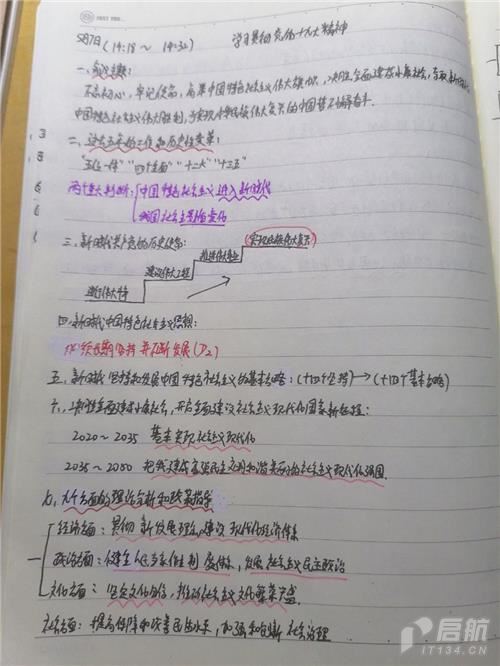 5月7日 (14:18~14:32) 学习贯彻党的十九大精神
一、会议主题:
不忘初心,牢记使命,高举中国特色社会主义伟大旗帜,决胜全面建成小康社会,夺取新时代
中国特色社会主义伟大胜利,为实现中华民族伟大复兴的中国梦不懈奋斗.
二、过去五年的工作和历史性变革:
"五位一体" "四个全面" "十二大" "十三五"
两个重大判断: 中国特色社会主义进入新时代
我国社会主要矛盾变化
三、新时代共产党的历史使命:
实现民族伟大复兴
推进伟大事业
建设伟大工程
进行伟大
四、新时代中国特色社会主义思想:
必须长期坚持并不断发展 (P2)
五、新时代坚持和发展中国特色社会主义的基本方略: (十四个坚持)→(十四个基本方略)
六、决胜全面建成小康社会,开启全面建设社会主义现代化国家新征程:
2020~2035 基本实现社会主义现代化
2035~2050 把我建成富强民主文明和谐美丽的社会主义现代化强国
九个方面的理论分析和政策指导
经济方面: 贯彻新发展理念,建设现代化经济体系
政治方面: 健全人民当家作主制度体系,发展社会主义民主政治
文化方面: 坚定文化自信,推动社会主义文化繁荣兴盛
社会方面: 提高保障和改善民生水平,加强和创新社会治理
启航
IT134.CN